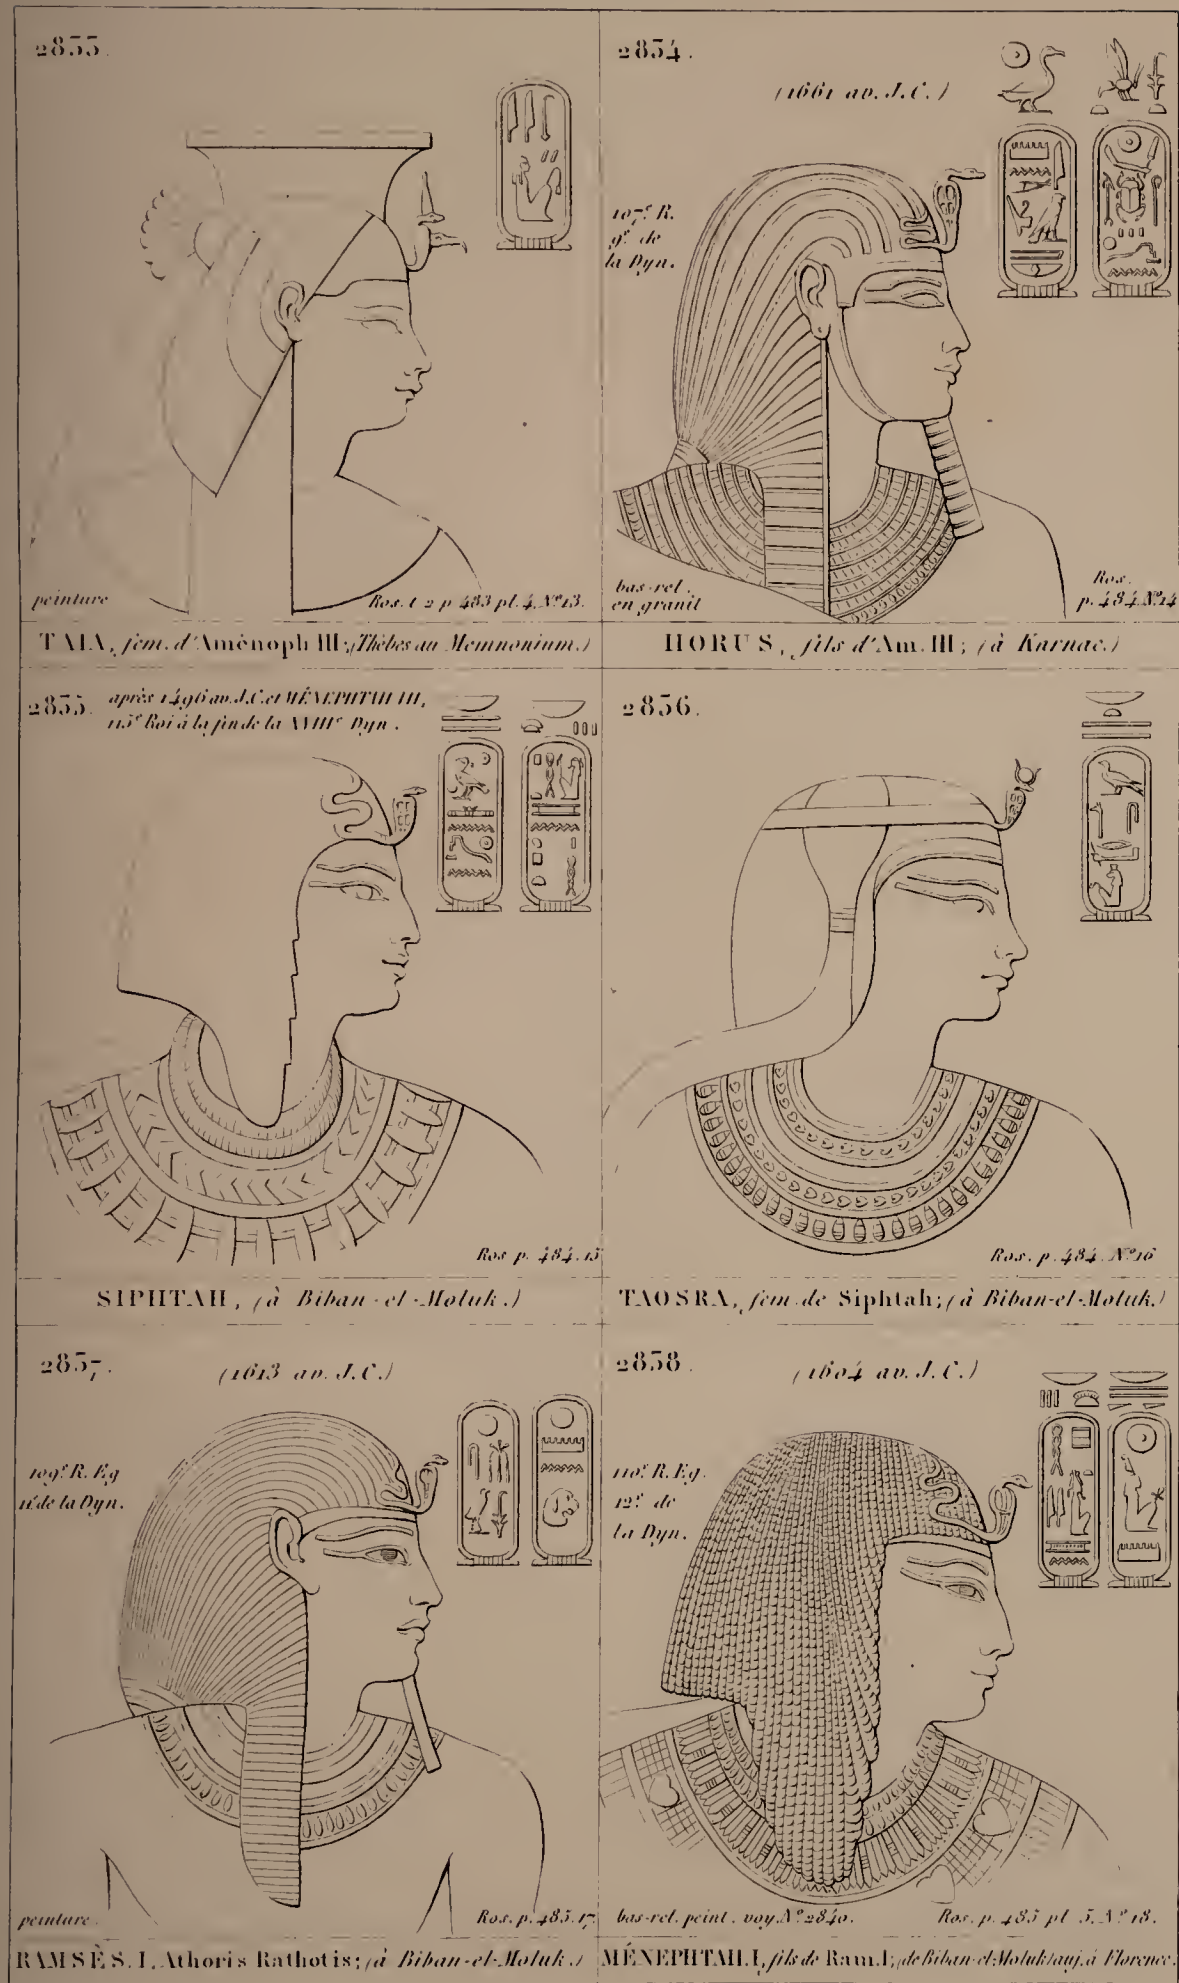 2833.
peinture
Ros. t 2 p 483 pl. 4. Nº 13.
TAIA, fem. d'Aménoph III; (Thèbes au Memnonium.)
2834.
(1661 av. J.C.)
107e R.
9e de
la Dyn.
bas-rel.
en granit
Ros.
p. 484. Nº 14
HORUS, fils d'Am. III; (à Karnac.)
2835.
après 1496 av. J.C. et MÉNEPHTAH III,
115e Roi à la fin de la XVIIIe Dyn.
Ros p. 484. 15
SIPHTAH, (à Biban-el-Moluk.)
2836.
Ros. p. 484. Nº 16
TAOSRA, fem. de Siphtah; (à Biban-el-Moluk.)
2837.
(1613 av. J.C.)
109e R. Eg
11e de la Dyn.
peinture.
Ros. p. 485. 17
RAMSÈS. I. Athoris Rathotis; (à Biban-el-Moluk.)
2838
(1604 av. J.C.)
110e R. Eg.
12e de
la Dyn.
bas-rel. peint. voy. Nº 2840.
Ros. p. 485 pl 5. Nº 18.
MÉNEPHTAH. I, fils de Ram. I; (de Biban-el-Moluk) auj. à Florence.